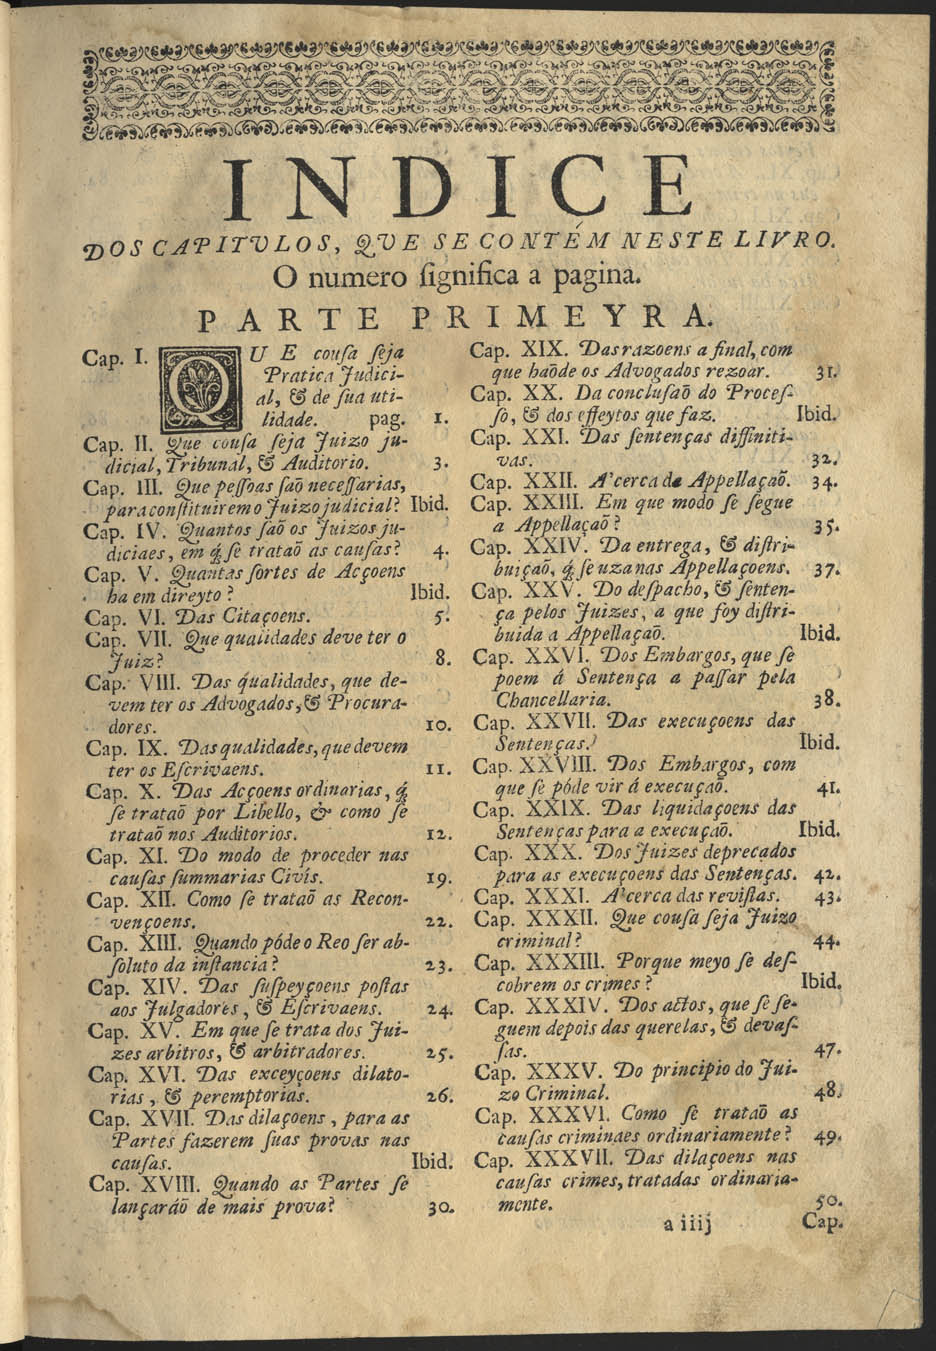 INDICE
DOS CAPITVLOS, QVE SE CONTÉM NESTE LIVRO.
O numero ſignifica a pagina.
PARTE PRIMEYRA.
Cap. I. QUE couſa ſeja
Pratica Judici-
al, & de ſua uti-
lidade. pag. 1.
Cap. II. Que couſa ſeja Juizo ju-
dicial, Tribunal, & Auditorio. 3.
Cap. III. Que peſſoas ſaõ neceſſarias,
para conſtituirem o Juizo judicial? Ibid.
Cap. IV. Quantos ſaõ os Juizos ju-
diciaes, em q̃ ſe trataõ as cauſas? 4.
Cap. V. Quantas ſortes de Acçoens
ha em direyto? Ibid.
Cap. VI. Das Citaçoens. 5.
Cap. VII. Que qualidades deve ter o
Juiz? 8.
Cap. VIII. Das qualidades, que de-
vem ter os Advogados, & Procura-
dores. 10.
Cap. IX. Das qualidades, que devem
ter os Eſcrivaens. 11.
Cap. X. Das Acçoens ordinarias, q̃
ſe trataõ por Libello, & como ſe
trataõ nos Auditorios. 12.
Cap. XI. Do modo de proceder nas
cauſas ſummarias Civis. 19.
Cap. XII. Como ſe trataõ as Recon-
vençoens. 22.
Cap. XIII. Quando póde o Reo ſer ab-
ſoluto da inſtancia? 23.
Cap. XIV. Das ſuſpeyçoens poſtas
aos Julgadores, & Eſcrivaens. 24.
Cap. XV. Em que ſe trata dos Jui-
zes arbitros, & arbitradores. 25.
Cap. XVI. Das exceyçoens dilato-
rias, & peremptorias. 26.
Cap. XVII. Das dilaçoens, para as
Partes fazerem ſuas provas nas
cauſas. Ibid.
Cap. XVIII. Quando as Partes ſe
lançaráõ de mais prova? 30.
Cap. XIX. Das razoens a final, com
que haõde os Advogados rezoar. 31.
Cap. XX. Da concluſaõ do Proceſ-
ſo, & dos effeytos que faz. Ibid.
Cap. XXI. Das ſentenças diffiniti-
vas. 32.
Cap. XXII. A'cerca da Appellaçaõ. 34.
Cap. XXIII. Em que modo ſe ſegue
a Appellaçaõ? 35.
Cap. XXIV. Da entrega, & diſtri-
buiçaõ, q̃ ſe uza nas Appellaçoens. 37.
Cap. XXV. Do deſpacho, & ſenten-
ça pelos Juizes, a que foy diſtri-
buida a Appellaçaõ. Ibid.
Cap. XXVI. Dos Embargos, que ſe
poem á Sentença a paſſar pela
Chancellaria. 38.
Cap. XXVII. Das execuçoens das
Sentenças. Ibid.
Cap. XXVIII. Dos Embargos, com
que ſe póde vir á execuçaõ. 41.
Cap. XXIX. Das liquidaçoens das
Sentenças para a execuçaõ. Ibid.
Cap. XXX. Dos Juizes deprecados
para as execuçoens das Sentenças. 42.
Cap. XXXI. A'cerca das reviſtas. 43.
Cap. XXXII. Que couſa ſeja Juizo
criminal? 44.
Cap. XXXIII. Porque meyo ſe deſ-
cobrem os crimes? Ibid.
Cap. XXXIV. Dos actos, que ſe ſe-
guem depois das querelas, & devaſ-
ſas. 47.
Cap. XXXV. Do principio do Jui-
zo Criminal. 48.
Cap. XXXVI. Como ſe trataõ as
cauſas criminaes ordinariamente? 49.
Cap. XXXVII. Das dilaçoens nas
cauſas crimes, tratadas ordinaria-
mente. 50.
a iiij Cap.